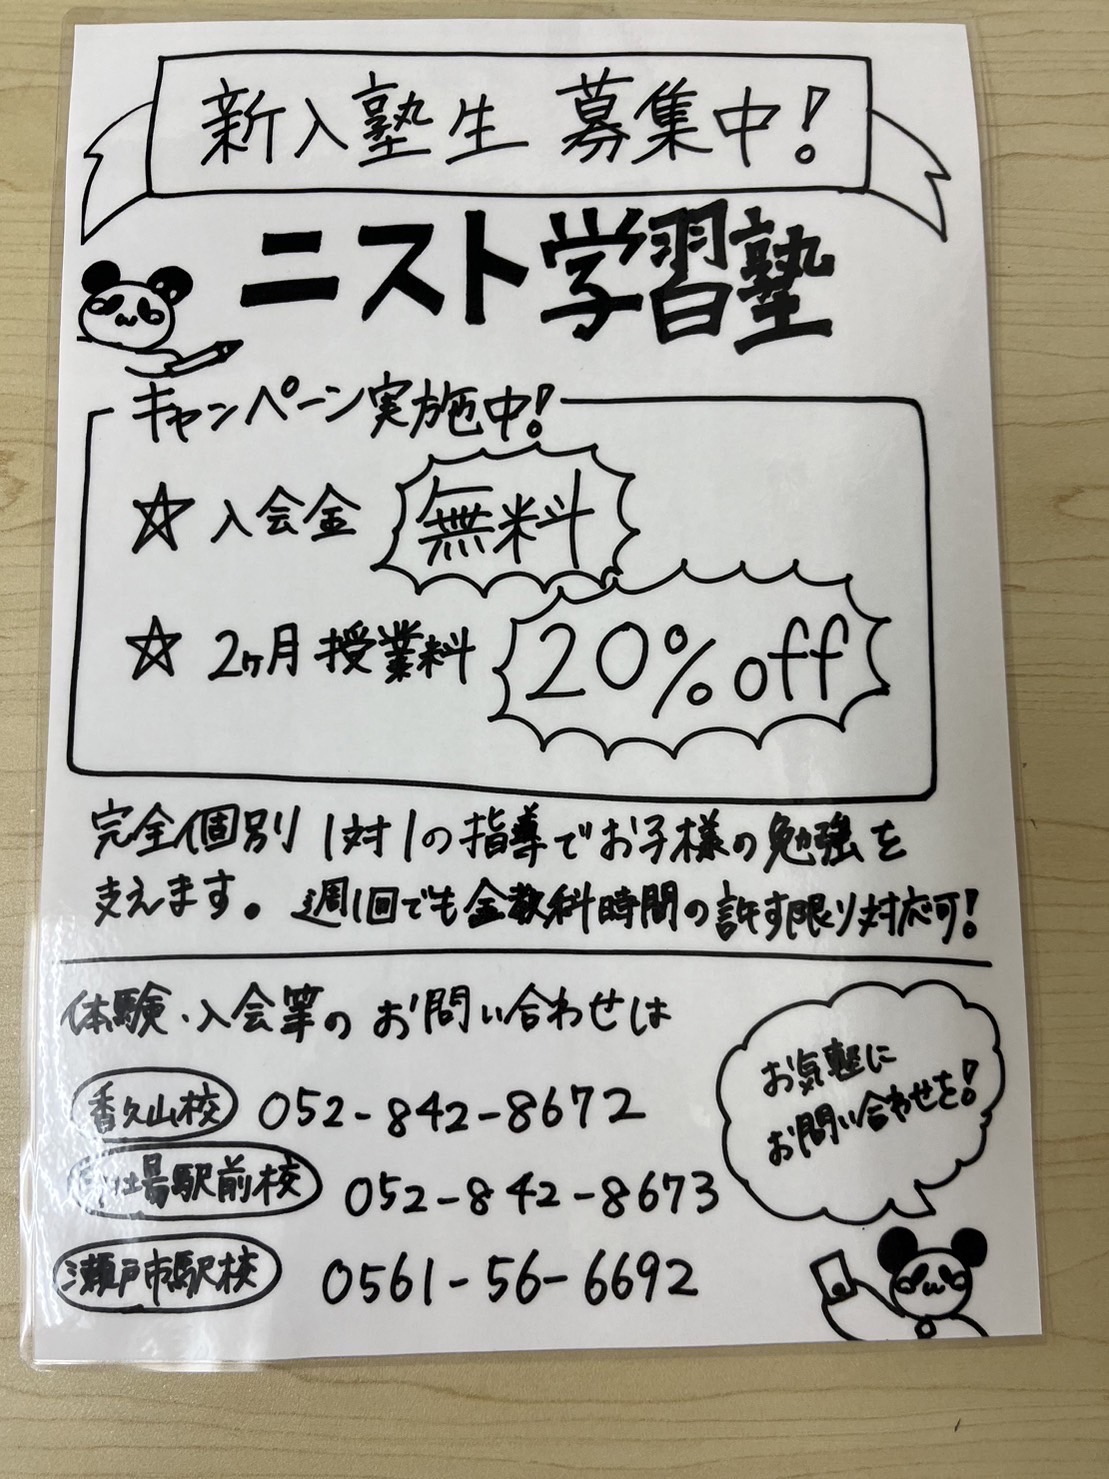 新入塾生 募集中!
ニスト学習塾
キャンペーン実施中!
☆ 入会金 無料
☆ 2ヶ月 授業料 20%off
完全個別 1対1の指導でお子様の勉強を
支えます。週1回でも全教科時間の許す限り対応可!
体験・入会等のお問い合わせは
お気軽に
お問い合わせを!
香久山校 052-842-8672
駅前校 052-842-8673
瀬戸市駅校 0561-56-6692